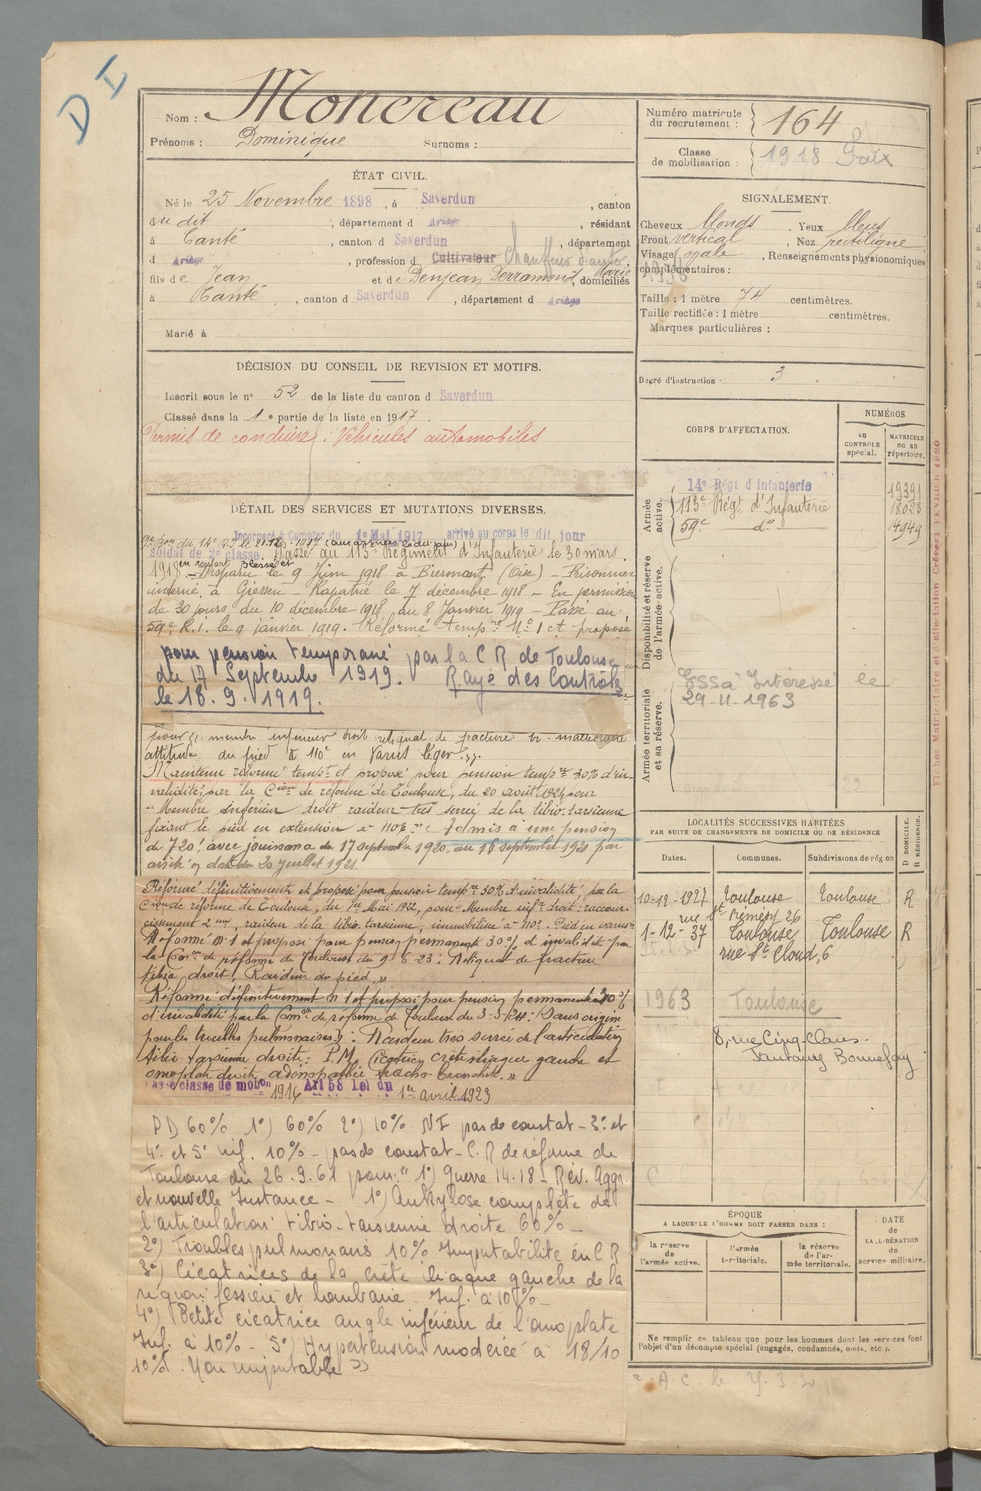 D I
Nom : Moncreau
Prénoms : Dominique Surnoms :
ÉTAT CIVIL.
Né le 25 Novembre 1898, à Saverdun, canton
du dit, département d Ariège, résidant
à Canté, canton d Saverdun, département
d Ariège, profession d Cultivateur Chauffeur d'auto,
fils de Jean et de Denjean Derramond, Marie, domiciliés
à Canté, canton d Saverdun, département d Ariège
Marié à
DÉCISION DU CONSEIL DE REVISION ET MOTIFS.
Inscrit sous le n° 52 de la liste du canton d Saverdun
Classé dans la 1e partie de la liste en 1917.
Permis de conduire : Véhicules automobiles
DÉTAIL DES SERVICES ET MUTATIONS DIVERSES.
Incorporé à Compter du 1e Mai 1917 arrivé au corps le dit jour
soldat de 2e classe. Passé au 113e Régiment d'Infanterie le 30 mars
1918 en renfort blessé et Disparu le 9 Juin 1918 à Biermont (Oise) - Prisonnier
interné à Giessen - Rapatrié le 7 décembre 1918 - En permission
de 30 jours du 10 décembre 1918 au 8 Janvier 1919 - Passé au
59e R.i. le 9 janvier 1919. Réformé tempre N° 1 et proposé
pour pension temporaire par la C R de Toulouse
du 17 Septembre 1919. Rayé des Contrôles
le 18. 9. 1919.
pour " membre inférieur droit reliquat de fracture bi-malléolaire
attitude du pied à 110° en varus léger ".
Maintenu réformé tempre et proposé pour pension tempre 30% d'in-
validité, par la Cion de réforme de Toulouse, du 20 août 1921 pour
" Membre inférieur droit raideur très serrée de la tibio-tarsienne
fixant le pied en extension à 110° " Admis à une pension
de 720f avec jouissance du 17 septembre 1920, au 16 septembre 1921 par
arrêté en date du 20 juillet 1921.
Réformé définitivement et proposé pour pension tempre 30% d'invalidité par la
Cion de réforme de Toulouse, du 1er Mai 1922, pour " Membre infr droit : raccour-
cissement 2 cm, raideur de la tibio tarsienne, immobilisée à 110°. Pied en varus "
Réformé n° 1 et proposé pour pension permanente 30% d'invalidité par
la Con de réforme de Toulouse du 9-6-23 : Reliquat de fracture
tibia droit. Raideur du pied "
Réformé définitivement n° 1 et proposé pour pension permanente 40%
d'invalidité par la Comon de réforme de Toulouse du 3-3-24 : (Sans origine
pour les troubles pulmonaires) : Raideur très serrée de l'articulation
tibio-tarsienne droite. P.M. Cicatrices crête iliaque gauche et
omoplate droite, adénopathie trachéo bronchite. "
Passé classe de mobon 1916 Art 58 Loi du 1er avril 1923
PD 60% 1°) 60% 2°) 10% NI pas de constat - 3° et
4° et 5° inf. 10% - pas de constat - C.R de réforme de
Toulouse du 26.9.61 pour " 1°) Guerre 14.18 - Rév. Aggr.
et nouvelle Instance - 1°) Ankylose complète de
l'articulation tibio-tarsienne droite 60% -
2°) Troubles pulmonaires 10% Imputabilité en C R
3°) Cicatrices de la crête iliaque gauche de la
région fessière et lombaire. Inf. à 10% -
4°) Petite cicatrice angle inférieur de l'omoplate
Inf. à 10% - 5°) Hypertension modérée à 18/10
10% Non imputable "
Numéro matricule du recrutement : 164
Classe de mobilisation : 1918 Foix
SIGNALEMENT.
Cheveux blonds. Yeux bleus
Front vertical, Nez rectiligne
Visage ovale, Renseignements physionomiques
complémentaires :
Taille : 1 mètre 74 centimètres.
Taille rectifiée : 1 mètre centimètres.
Marques particulières :
Degré d'instruction : 3.
CORPS D'AFFECTATION.
NUMÉROS
AU CONTRÔLE spécial.
MATRICULE OU AU répertoire.
Armée active.
14e Régt d'Infanterie 19391
113e Régt d'Infanterie 18023
59e do 14949
Disponibilité et réserve de l'armée active.
Armée territoriale et sa réserve.
29-11-1963
Fiches Matriculaire et d'affectation Créées; FÉVRIER 1920
LOCALITÉS SUCCESSIVES HABITÉES
PAR SUITE DE CHANGEMENTS DE DOMICILE OU DE RÉSIDENCE
D DOMICILE. R RÉSIDENCE.
Dates. Communes. Subdivisions de région
10-12-1927 Toulouse Toulouse R
rue St Rémésy 26
1-12-37 Toulouse Toulouse R
rue St Cloud, 6
1963 Toulouse
8, rue Cinq Claus -
Faubourg Bonnefoy
ÉPOQUE
A LAQUELLE L'HOMME DOIT PASSER DANS :
DATE DE LA LIBÉRATION DU service militaire.
la réserve de l'armée active.
l'armée territoriale.
la réserve de l'armée territoriale.
Ne remplir ce tableau que pour les hommes dont les services font
l'objet d'un décompte spécial (engagés, condamnés, omis, etc.).